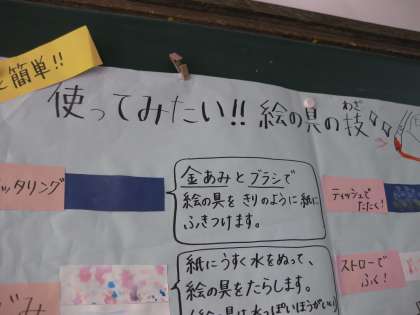 簡単!!
使ってみたい!! 絵の具の技
わざ
ッタリング
金あみとブラシで
絵の具をきりのように紙に
ふきつけます。
ティッシュで
たたく!
紙にうすく水をぬって、
絵の具をたらします。
(絵の具は水っぽいほうがいい)
ストローで
ふく!
じみ